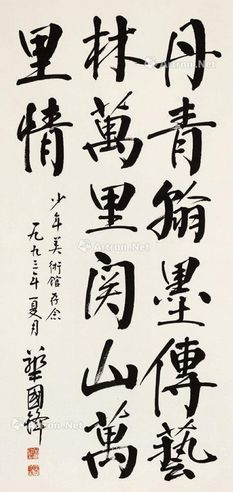 丹青翰墨傳藝
林萬里関山萬
里情
少年美術館存念
一九九三年夏月
華國鋒
Artron.Net